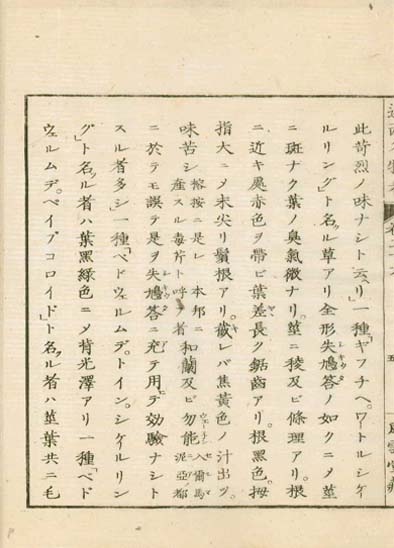 此苛烈ノ味ナシト云ヘリ一種「ギフチヘ。ワートルシケ
ルリング」ト名ツル草アリ全形失鳩答ノ如クニメ莖
ニ斑ナク葉ノ臭氣微ナリ。莖ニ稜及ヒ條理アリ。根
ニ近キ處赤色ヲ帶ビ葉差長ク鋸齒アリ。根黑色。拇
指大ニメ末尖リ鬚根アリ。截レバ焦黄色ノ汁出ヅ。
味苦シ 榕按ニ是レ本邦ニ產スル毒芹ト呼ブ者 和蘭及ヒ勿能入爾馬泥亞都
ニ於テモ誤テ是ヲ失鳩答ニ充テ用ヒテ効驗ナシト
スル者多シ」一種「ベドウェルムデ。トイン。シケルリン
グ」ト名ツル者ハ葉黑綠色ニメ背光澤アリ一種「ベド
ウェルムデ。ペイプコロイド」ト名ツル者ハ莖葉共ニ毛
五